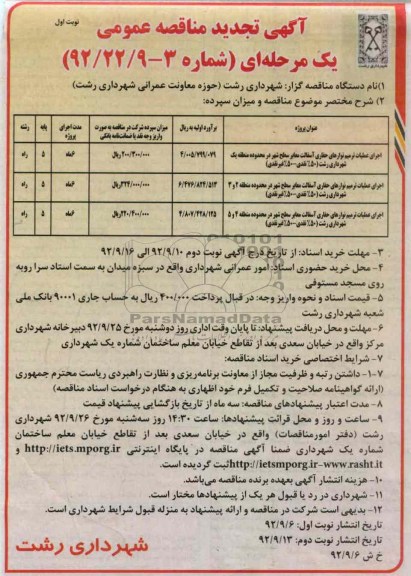 نوبت اول
آگهی تجدید مناقصه عمومی
یک مرحله‌ای (شماره ۳-۹۲/۲۲/۹)
شهرداری رشت
۱)نام دستگاه مناقصه گزار: شهرداری رشت (حوزه معاونت عمرانی شهرداری رشت)
۲) شرح مختصر موضوع مناقصه و میزان سپرده:
عنوان پروژه | برآورد اولیه به ریال | میزان سپرده شرکت در مناقصه به صورت واریز وجه نقد یا ضمانتنامه بانکی | مدت اجرای پروژه | پایه | رشته
اجرای عملیات ترمیم نوارهای حفاری آسفالت معابر سطح شهر در محدوده منطقه یک شهرداری رشت (۵۰٪نقدی-۵۰٪غیرنقدی) | ۴/۰۰۵/۷۹۹/۰۷۹ | ۲۰۰/۳۰۰/۰۰۰ریال | ۶ماه | ۵ | راه
اجرای عملیات ترمیم نوارهای حفاری آسفالت معابر سطح شهر در محدوده منطقه ۲و۳ شهرداری رشت (۵۰٪نقدی-۵۰٪غیرنقدی) | ۶/۴۷۶/۸۲۴/۵۱۳ | ۳۲۴/۰۰۰/۰۰۰ریال | ۶ماه | ۵ | راه
اجرای عملیات ترمیم نوارهای حفاری آسفالت معابر سطح شهر در محدوده منطقه ۴و۵ شهرداری رشت (۵۰٪نقدی-۵۰٪غیرنقدی) | ۴/۸۰۷/۴۲۸/۱۲۵ | ۲۴۰/۴۰۰/۰۰۰ریال | ۶ماه | ۵ | راه
۳- مهلت خرید اسناد: از تاریخ درج آگهی نوبت دوم ۹۲/۹/۱۰ الی ۹۲/۹/۱۶
۴- محل خرید حضوری اسناد: امور عمرانی شهرداری واقع در سبزه میدان به سمت استاد سرا روبه
روی مسجد مستوفی
۵- قیمت اسناد و نحوه واریز وجه: در قبال پرداخت ۴۰۰/۰۰۰ ریال به حساب جاری ۹۰۰۰۱ بانک ملی
شعبه شهرداری رشت
۶- مهلت و محل دریافت پیشنهاد: تا پایان وقت اداری روز دوشنبه مورخ ۹۲/۹/۲۵ دبیرخانه شهرداری
مرکز واقع در خیابان سعدی بعد از تقاطع خیابان معلم ساختمان شماره یک شهرداری
۷- شرایط اختصاصی خرید اسناد مناقصه:
۱-۷- داشتن رتبه و ظرفیت مجاز از معاونت برنامه‌ریزی و نظارت راهبردی ریاست محترم جمهوری
(ارائه گواهینامه صلاحیت و تکمیل فرم خود اظهاری به هنگام درخواست اسناد مناقصه)
۸- مدت اعتبار پیشنهادهای مناقصه: سه ماه از تاریخ بازگشایی پیشنهاد قیمت
۹- ساعت و روز و محل قرائت پیشنهادها: ساعت ۱۴:۳۰ روز سه‌شنبه مورخ ۹۲/۹/۲۶ شهرداری
رشت (دفتر امورمناقصات) واقع در خیابان سعدی بعد از تقاطع خیابان معلم ساختمان
شماره یک شهرداری ضمنا آگهی مناقصه در پایگاه اینترنتی http://iets.mporg.ir و
http://ietsmporg.ir-www.rasht.it ثبت گردیده است.
۱۰- هزینه انتشار آگهی بعهده برنده مناقصه می‌باشد.
۱۱- شهرداری در رد یا قبول هر یک از پیشنهادها مختار است.
۱۲- بدیهی است شرکت در مناقصه و ارائه پیشنهاد به منزله قبول شرایط شهرداری است.
تاریخ انتشار نوبت اول: ۹۲/۹/۶
تاریخ انتشار نوبت دوم: ۹۲/۹/۱۳
خ ش ۹۲/۹/۶
شهرداری رشت
ParsNamadData